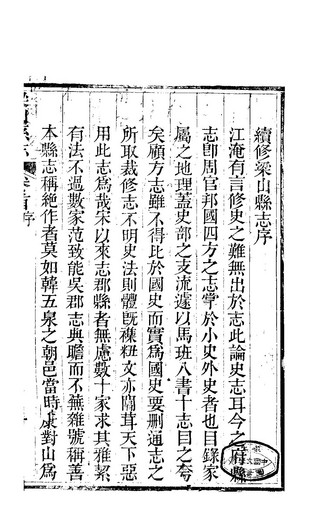 續修梁山縣志序
江淹有言修史之難無出於志此論史志耳今之府縣
志卽周官邦國四方之志掌於小史外史者也目錄家
屬之地理蓋史部之支流遽以馬班八書十志目之夸
矣顧方志雖不得比於國史而實爲國史要刪通志之
所取裁修志不明史法則體旣襍糅文亦鬭茸天下惡
用此志爲哉宋以來志郡縣者無慮數十家求其雅絜
有法不過數家范致能吳郡志典贍而不蕪雜號稱善
本縣志稱絶作者莫如韓五泉之朝邑當時康對山爲
卷首序